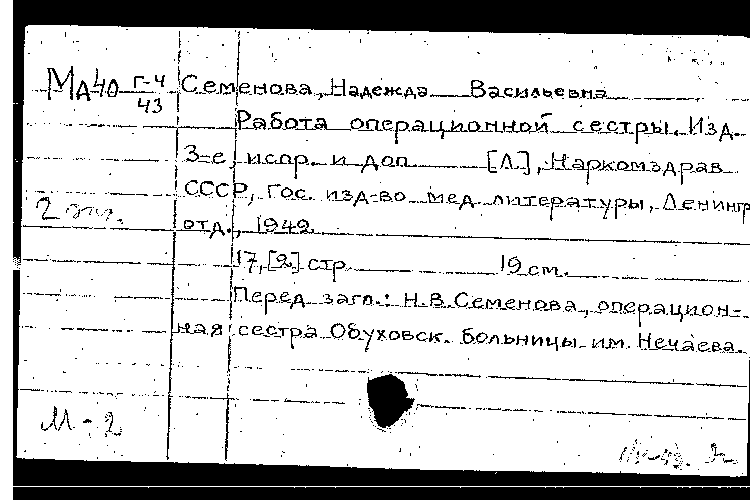 МА40 Г-4
43
Семенова, Надежда Васильевна
Работа операционной сестры. Изд.
3-е, испр. и доп [Л], Наркомздрав
СССР, Гос. изд-во мед литературы, Ленингр
2 экз.
отд., 1942
17, [2] стр 19 см.
Перед загл.: Н.В. Семенова, операцион-
ная сестра Обуховск. больницы им. Нечаева.
М-2